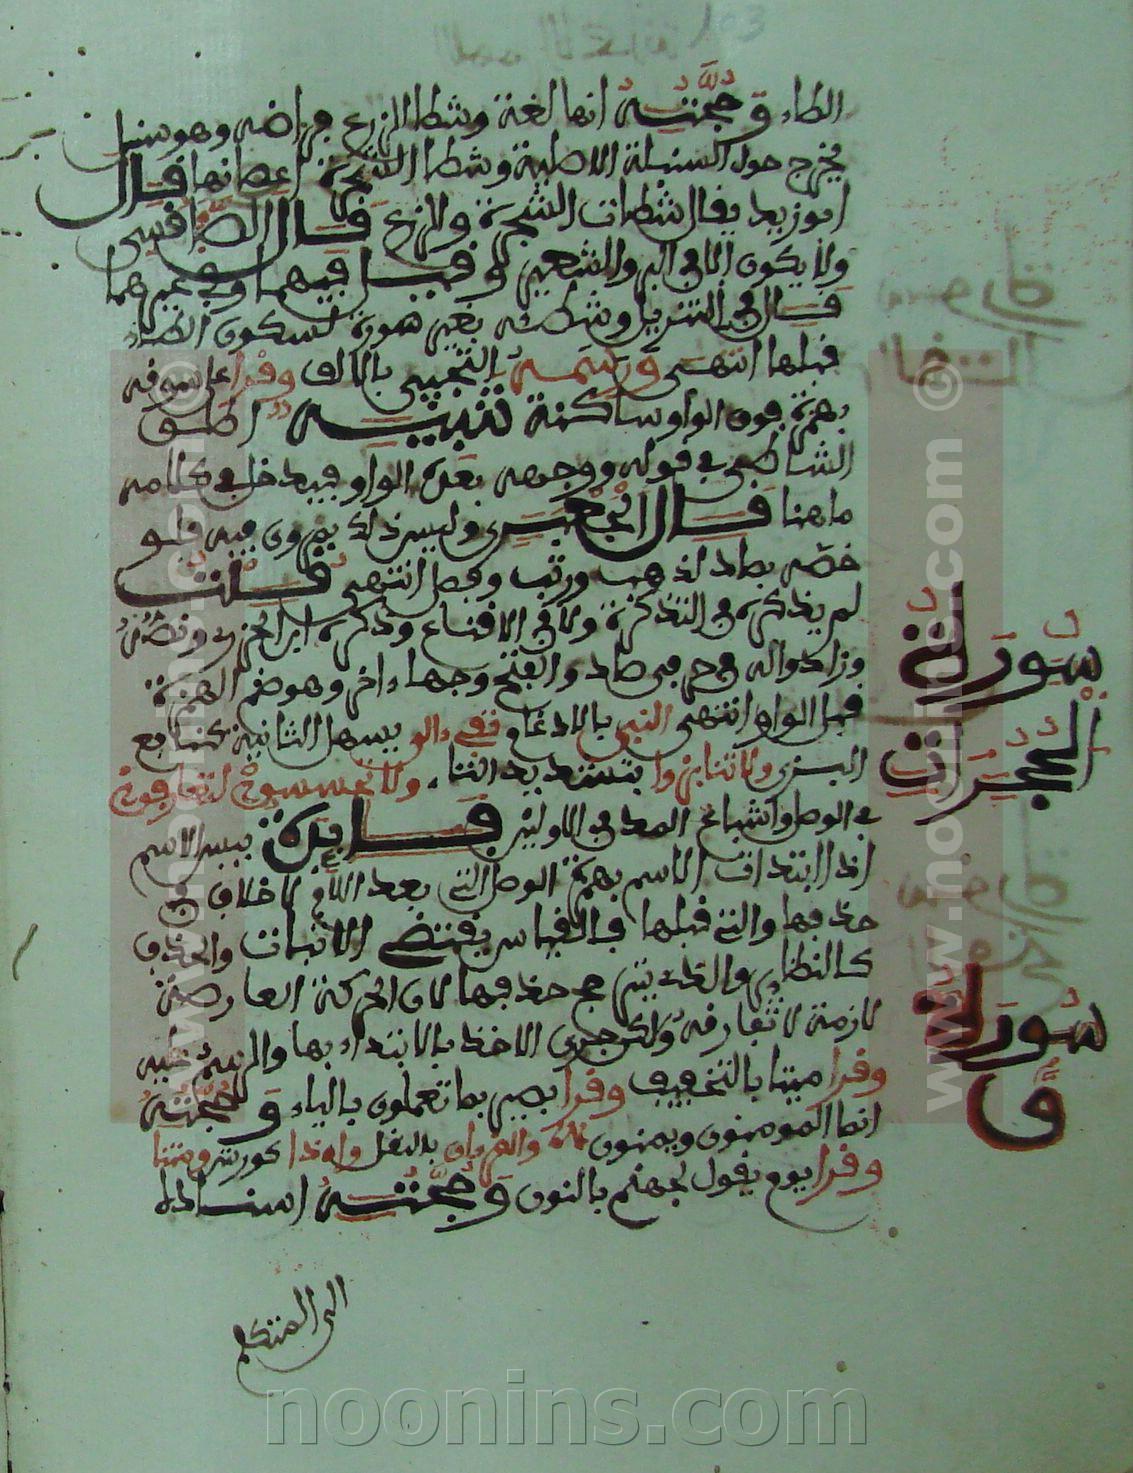 الطاء وحجته انها لغة وشطا الزرع فراخه وهو سنبل
يخرج حول السنبلة الاصلية وشطا الشجرة اغصانها قال
ابو زيد يقال شطات الشجرة والزرع قال الصفاقسي
ولا يكون الا في البر والشعير وقيل فيهما وفي غيرهما
قال في التنزيل وشطئه بغير صورة لسكون الطاء
قبلها انتهى ورسمه التجيبي بالالف وقرا على سوقه
بهمزة فوق الواو ساكنة تنبيه اطلق
الشاطبي في قوله ووجهه بعده الواو فيدخل في كلامه
ما هنا قال الجعبري وليس ذلك بمروي فيه فلو
خصه بصاد لذهب ورتب وفصل انتهى قلت
لم يذكره في التذكرة ولا في الاقناع وذكره ابن الجزري ونصه
وزادوا له في حرفي صاد والفتح وجها اخر وهو ضم الهمزة
قبل الواو انتهى النبي بالادغام تفيء الى يسهل الثانية كنافع
البزي ولا تنابزوا بتشديد التاء ولا تجسسوا لتعارفوا
في الوصل واشباع المد في الاولين فايدة بيس الاسم
اذا ابتدات الاسم بهمزة الوصل التي بعد اللام لا خلاف في
حذفها والتي قبلها فالقياس يقتضي الاثبات والحذف
كالنظائر والذي يترجح حذفها لان الحركة العارضة
لازمة لا تفارقه ولكن جرى الاخذ بالابتداء بها والرسم فيه
وقرا ميتا بالتخفيف وقرا بصير بما تعملون بالياء وحجته
انما المومنون ويمنون والقرءان بالنقل واءذا كورش ومتنا
وقرا يوم يقول لجهنم بالنون وحجته اسناده
سورة
الحجرات
سورة
ق
noonins.com
www.noonins.com ©
www.noonins.com ©